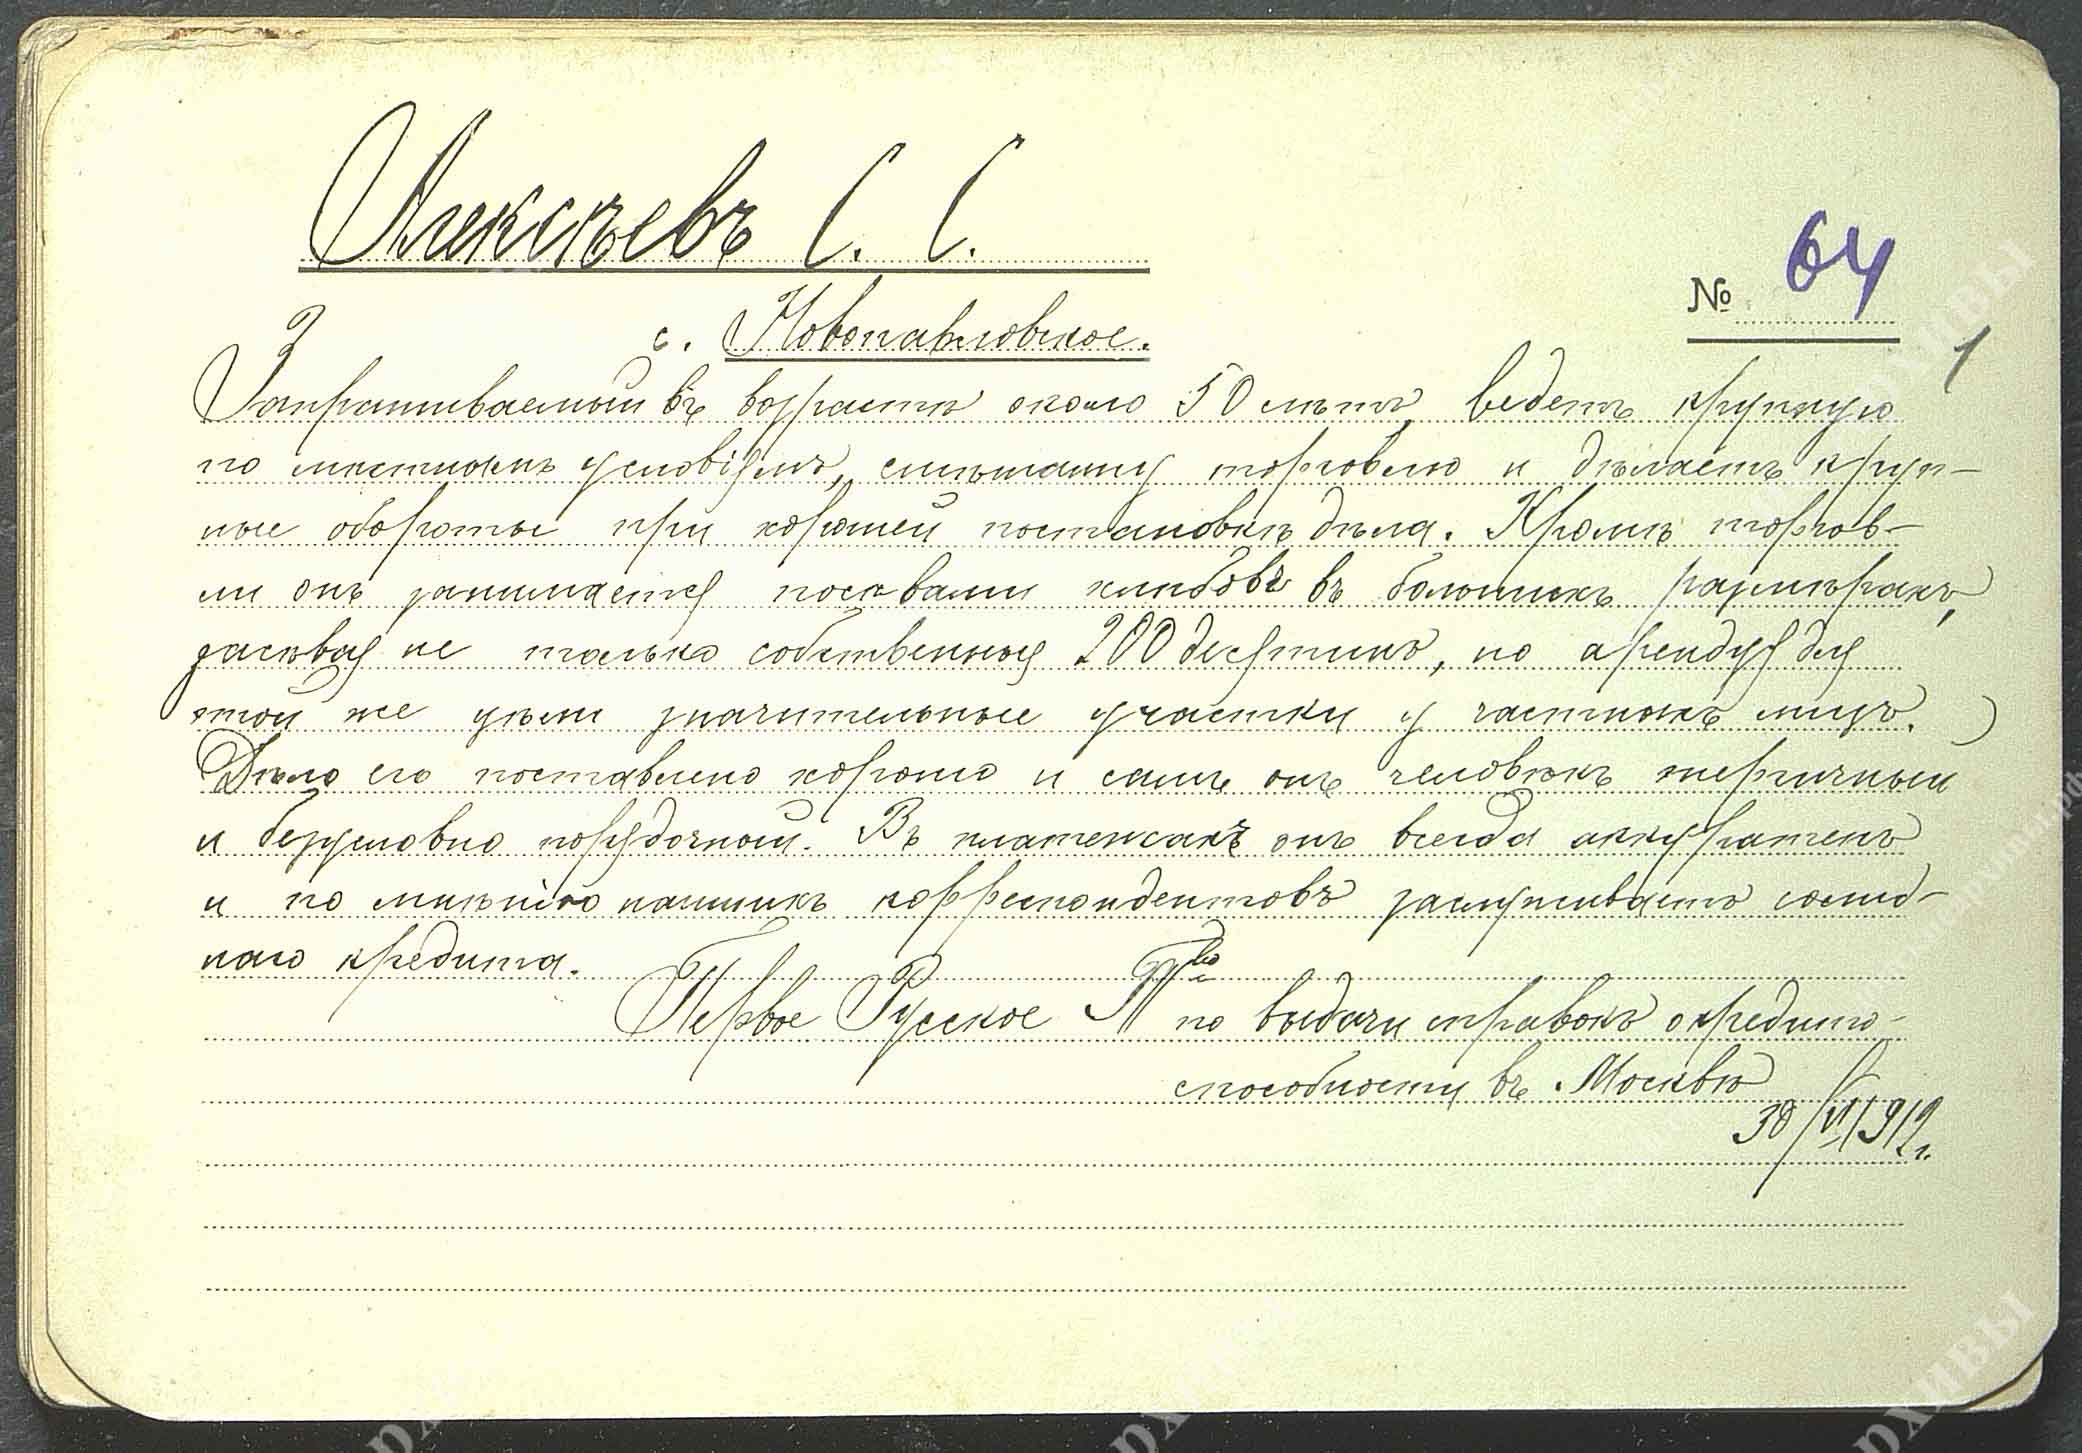 Алексѣевъ С. С.
№ 64
с. Новопавловское.
1
Запрашиваемый въ возрастѣ около 50 лѣтъ, ведетъ крупную
по мѣстнымъ условіямъ, смѣшанную торговлю и дѣлаетъ круп-
ные обороты при хорошей постановкѣ дѣла. Кромѣ торгов-
ли онъ занимается посѣвами хлѣбовъ въ большихъ размѣрахъ,
засѣвая не только собственныя 200 десятинъ, но арендуя для
этой же цѣли значительные участки у частныхъ лицъ.
Дѣло его поставлено хорошо и самъ онъ человѣкъ энергичный
и безусловно порядочный. Въ платежахъ онъ всегда аккуратенъ
и по мнѣнію нашихъ корреспондентовъ заслуживаетъ солид-
наго кредита.
Первое Русское Т-во по выдачи справокъ о кредито-
способности въ Москвѣ
30/VI 1912 г.